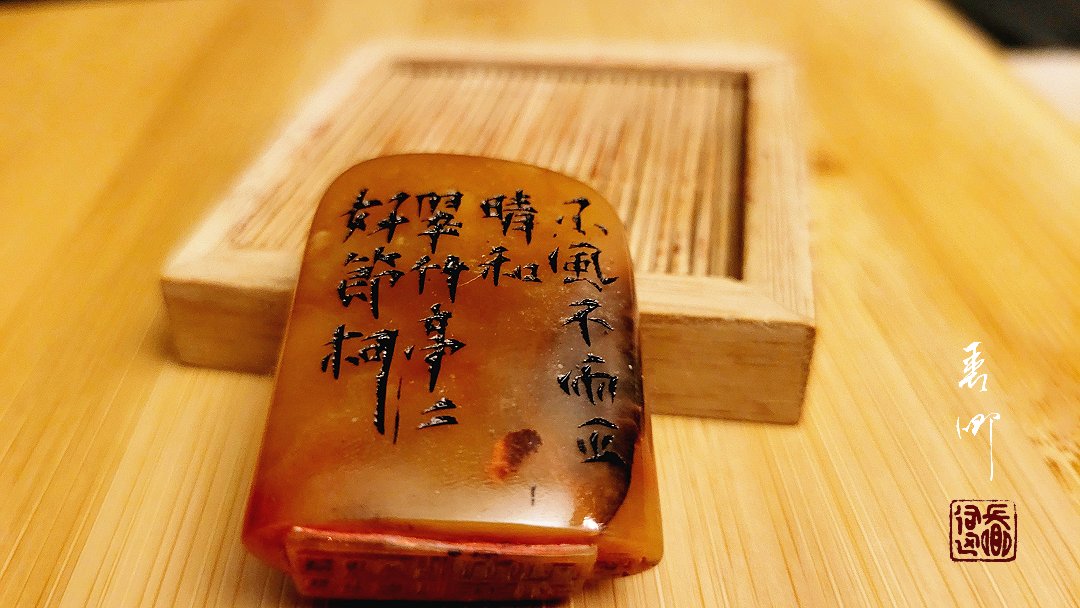 不風不雨正
晴和
翠竹亭二
好節柯